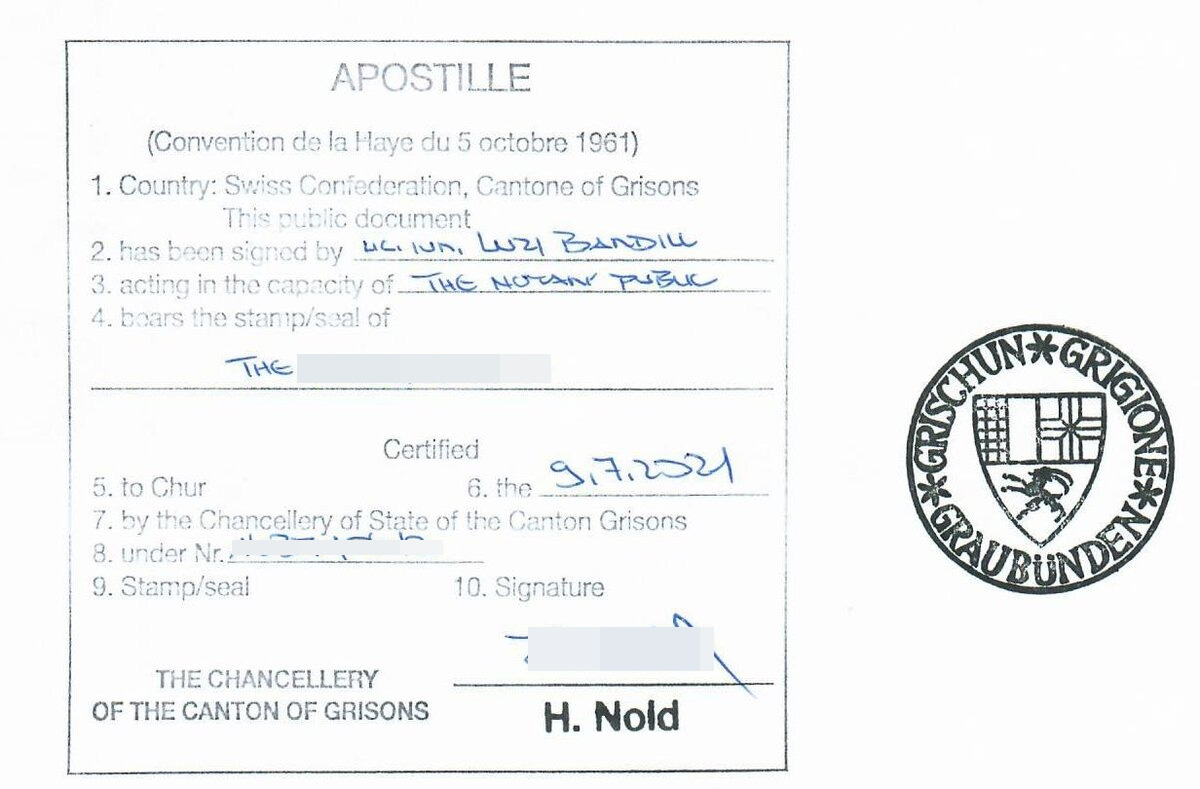 APOSTILLE
(Convention de la Haye du 5 octobre 1961)
1. Country: Swiss Confederation, Cantone of Grisons
This public document
2. has been signed by lic. iur. LUZI BARDILL
3. acting in the capacity of THE NOTARY PUBLIC
4. bears the stamp/seal of
THE
Certified
5. to Chur 6. the 9.7.2021
7. by the Chancellery of State of the Canton Grisons
8. under Nr.
9. Stamp/seal 10. Signature
THE CHANCELLERY
OF THE CANTON OF GRISONS
H. Nold
GRISCHUN * GRIGIONE * GRAUBÜNDEN *